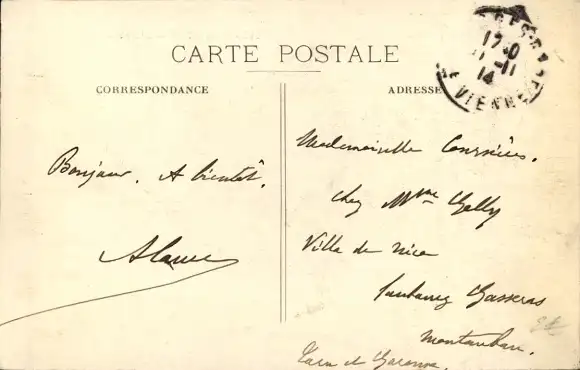 CARTE POSTALE
CORRESPONDANCE
ADRESSE
17-0
11-11
14
VIENNE
Bonjour. A bientôt.
Mademoiselle
chez Mme Gelly
Ville de Nice
faubourg Gasseras
Montauban.
Tarn et Garonne.